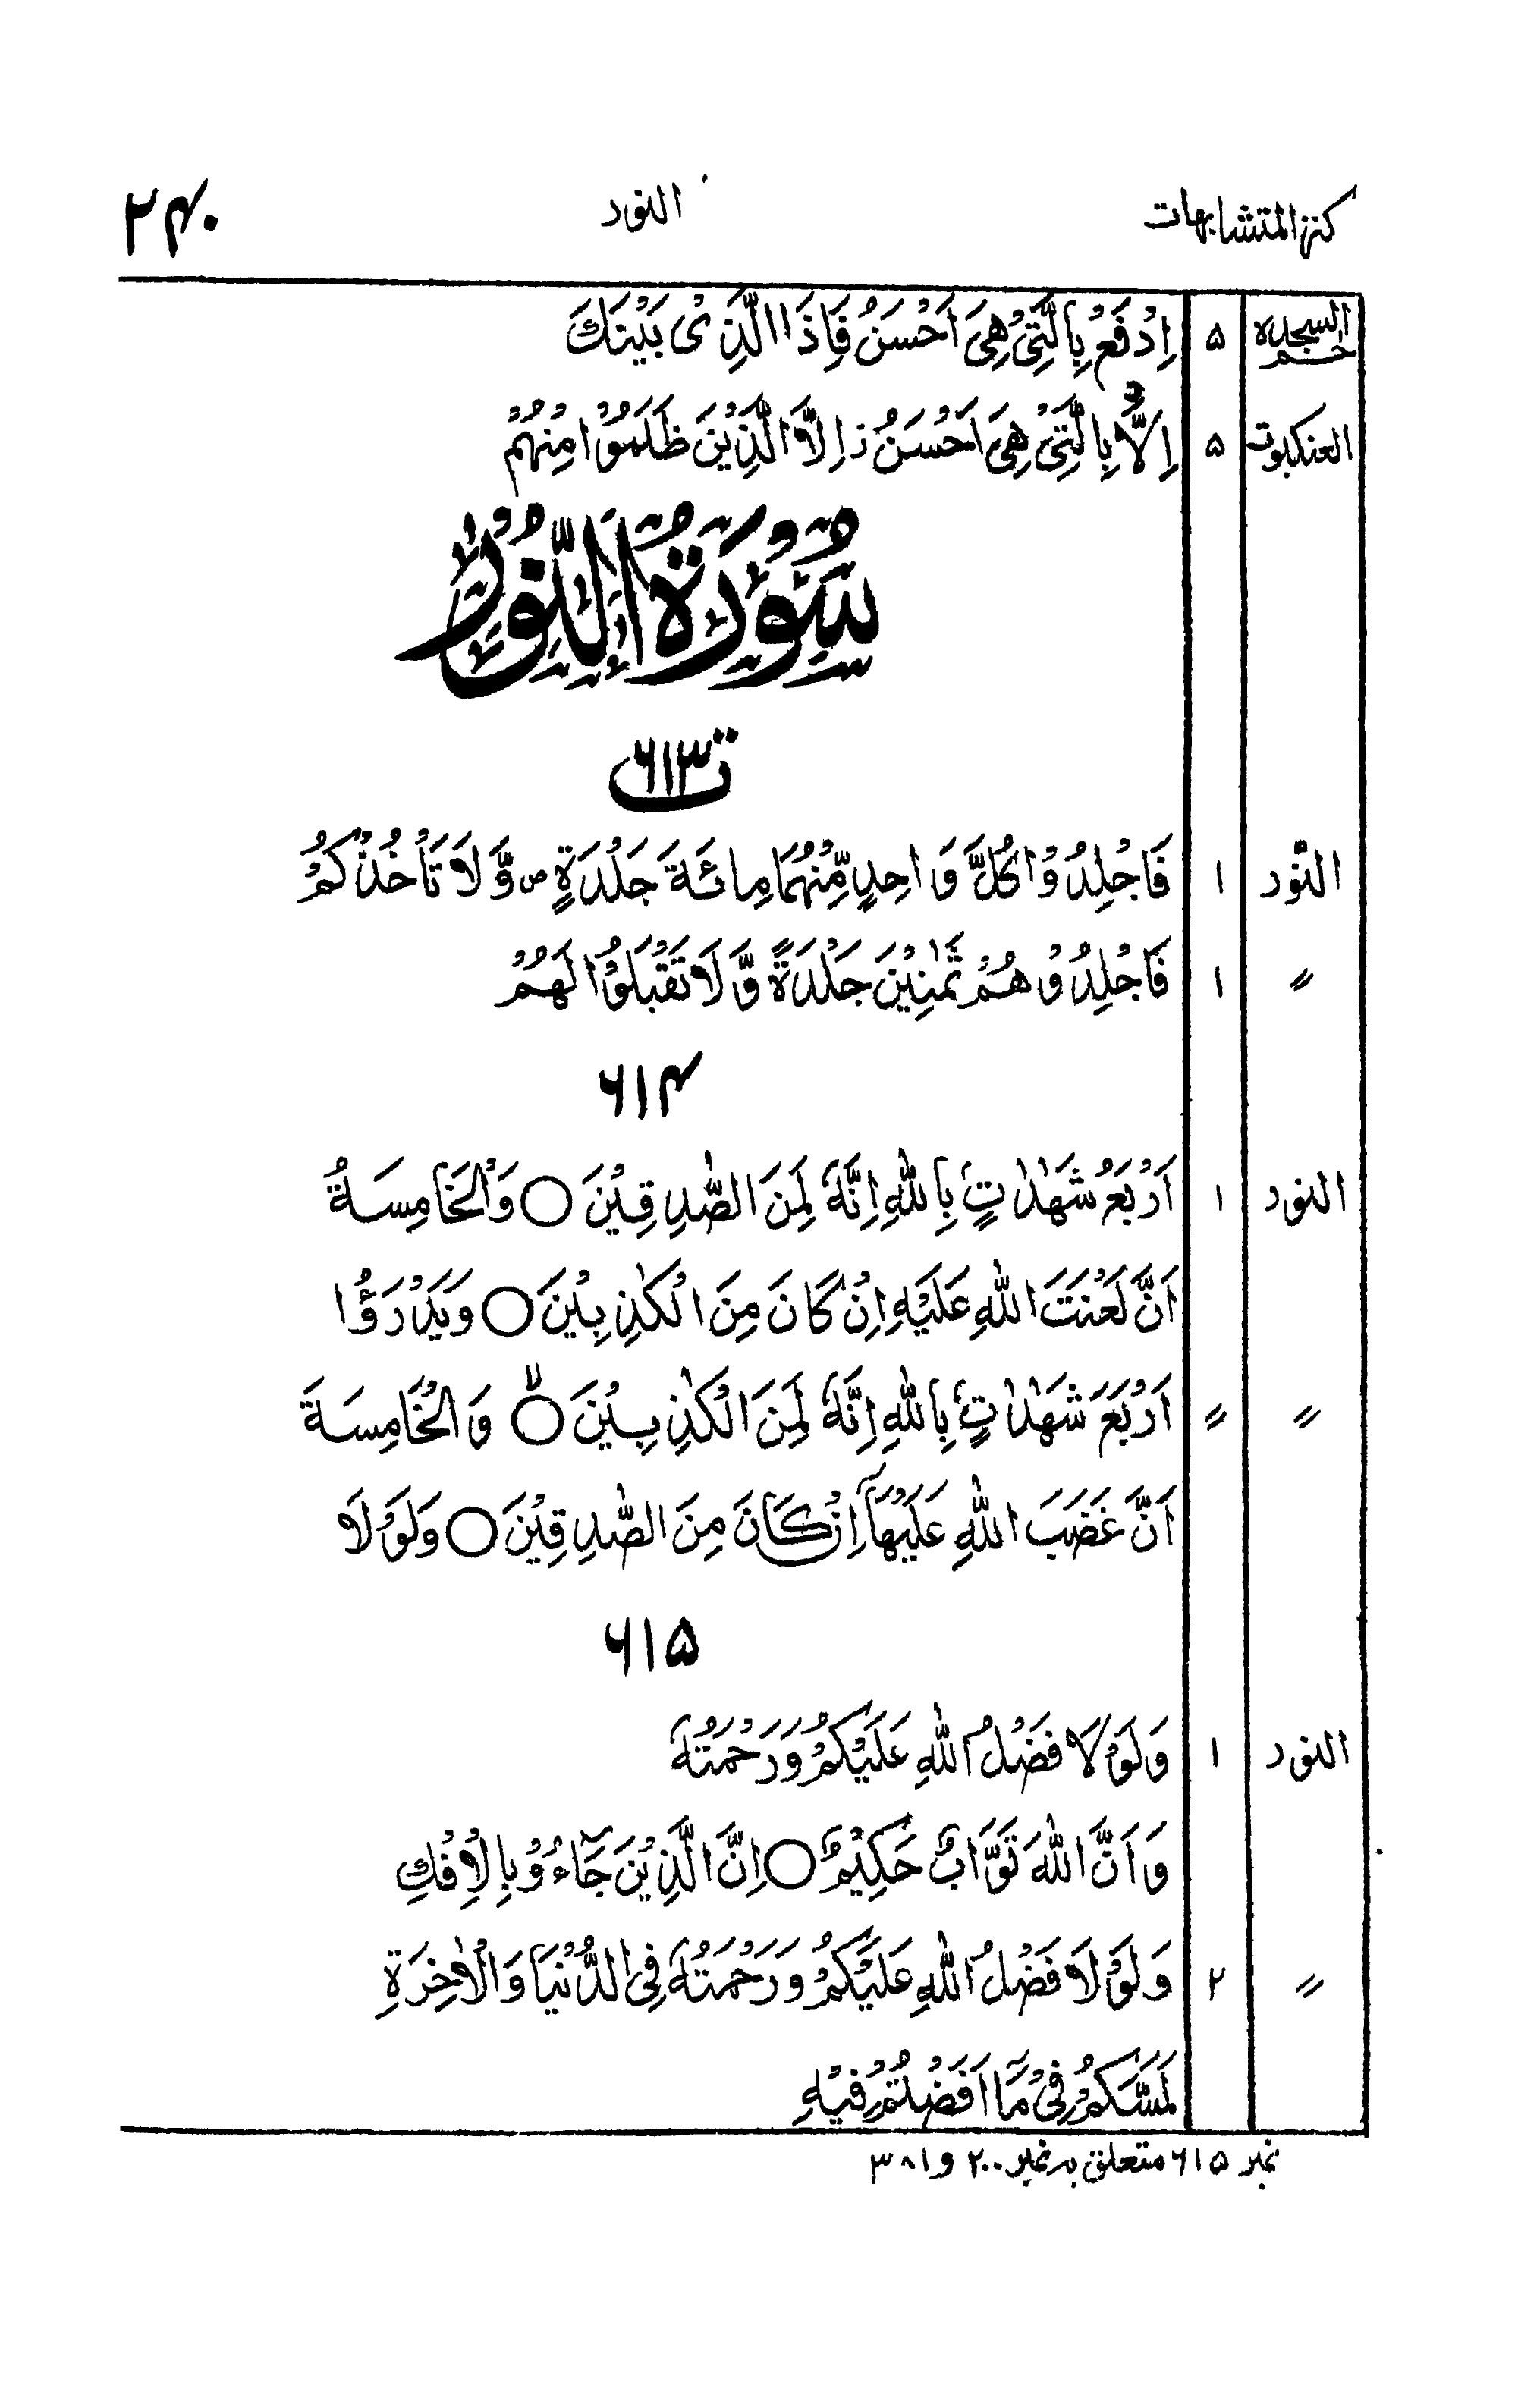 كنز المتشابهات النور ۲۴۰
حٰم السجدة ۵ اِدْفَعْ بِالَّتِیْ هِیَ اَحْسَنُ فَاِذَا الَّذِیْ بَیْنَكَ
العنكبوت ۵ اِلَّا بِالَّتِیْ هِیَ اَحْسَنُ ز اِلَّا الَّذِیْنَ ظَلَمُوْا مِنْهُمْ
سُوْرَةُ النُّوْرِ
ت ۶۱۳
النّور ۱ فَاجْلِدُوْا كُلَّ وَاحِدٍ مِّنْهُمَا مِائَةَ جَلْدَةٍ ص وَّلَا تَاْخُذْكُمْ
〃 ۱ فَاجْلِدُوْهُمْ ثَمٰنِیْنَ جَلْدَةً وَّلَا تَقْبَلُوْا لَهُمْ
۶۱۴
النور ۱ اَرْبَعُ شَهٰدٰتٍۭ بِاللّٰهِ اِنَّهٗ لَمِنَ الصّٰدِقِیْنَ ○ وَالْخَامِسَةُ
اَنَّ لَعْنَتَ اللّٰهِ عَلَیْهِ اِنْ كَانَ مِنَ الْكٰذِبِیْنَ ○ وَیَدْرَؤُا
〃 〃 اَرْبَعَ شَهٰدٰتٍۭ بِاللّٰهِ اِنَّهٗ لَمِنَ الْكٰذِبِیْنَ ○ۙ وَالْخَامِسَةَ
اَنَّ غَضَبَ اللّٰهِ عَلَیْهَاۤ اِنْ كَانَ مِنَ الصّٰدِقِیْنَ ○ وَلَوْلَا
۶۱۵
النور ۱ وَلَوْلَا فَضْلُ اللّٰهِ عَلَیْكُمْ وَرَحْمَتُهٗ
وَاَنَّ اللّٰهَ تَوَّابٌ حَكِیْمٌ ○ اِنَّ الَّذِیْنَ جَآءُوْ بِالْاِفْكِ
〃 ۲ وَلَوْلَا فَضْلُ اللّٰهِ عَلَیْكُمْ وَرَحْمَتُهٗ فِی الدُّنْیَا وَالْاٰخِرَةِ
لَمَسَّكُمْ فِیْ مَاۤ اَفَضْتُمْ فِیْهِ
نمبر ۶۱۵ متعلق بہ نمبر ۲۰۰ و ۳۸۱